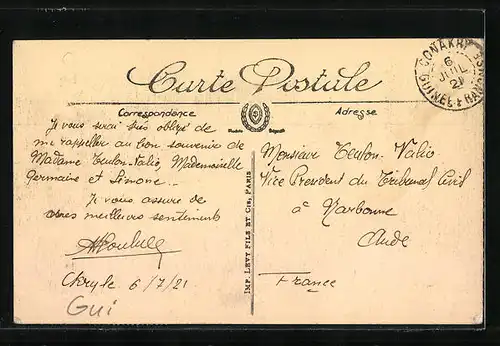 Carte Postale
Correspondance
Adresse
Modèle Déposé
CONAKRY
6
JUIL
21
GUINÉE FRANÇSE
Je vous serai très obligé de
me rappeller au bon souvenir de
Madame Teulon-Valio, Mademoiselle
Germaine et Simone...
Je vous assure de
mes meilleurs sentiments
6/7/21
Gui
IMP. LEVY FILS ET Cie, PARIS
Monsieur Teulon-Valio
Vice President du Tribunal Civil
à Narbonne
Aude
France